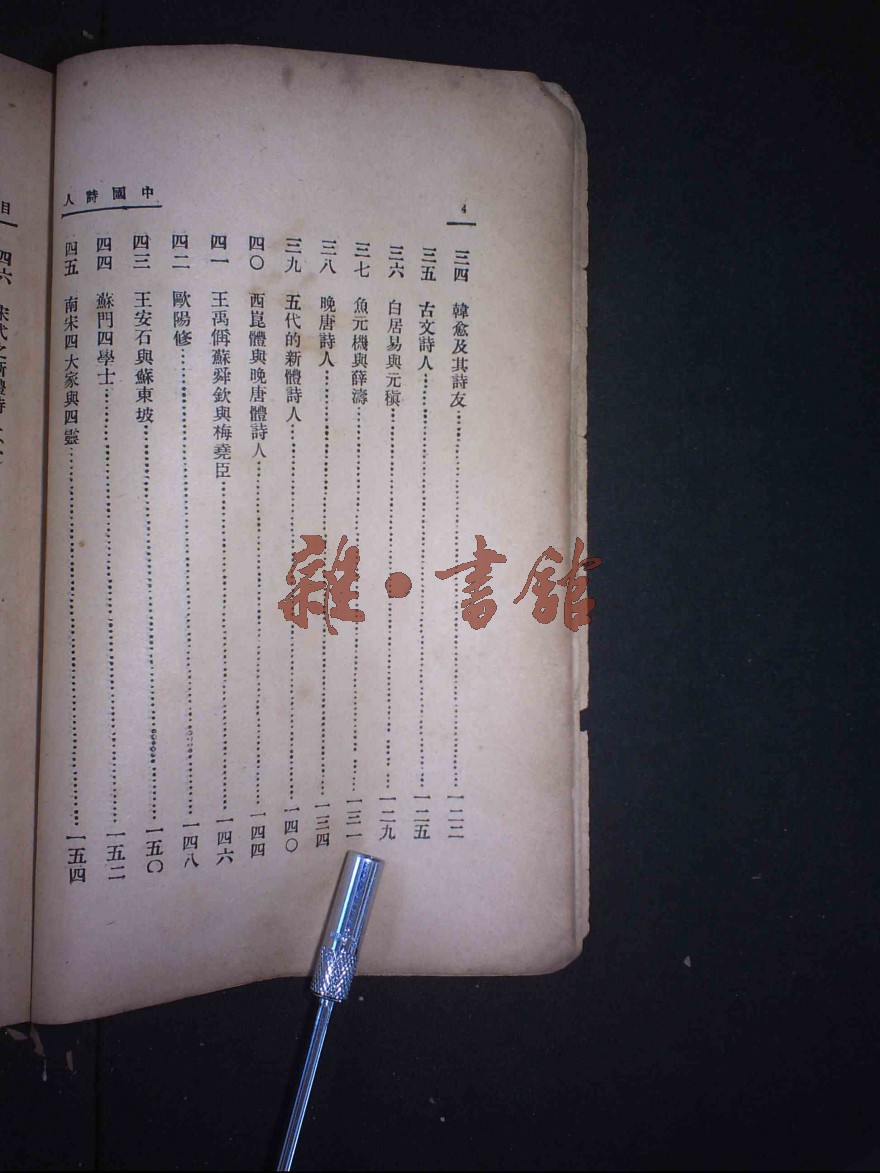 4
中國詩人
三四 韓愈及其詩友 一二二
三五 古文詩人 一二五
三六 白居易與元稹 一二九
三七 魚元機與薛濤 一三一
三八 晚唐詩人 一三四
三九 五代的新體詩人 一四〇
四〇 西崑體與晚唐體詩人 一四四
四一 王禹偁蘇舜欽與梅堯臣 一四六
四二 歐陽修 一四八
四三 王安石與蘇東坡 一五〇
四四 蘇門四學士 一五二
四五 南宋四大家與四靈 一五四
目
四六
雜·書館